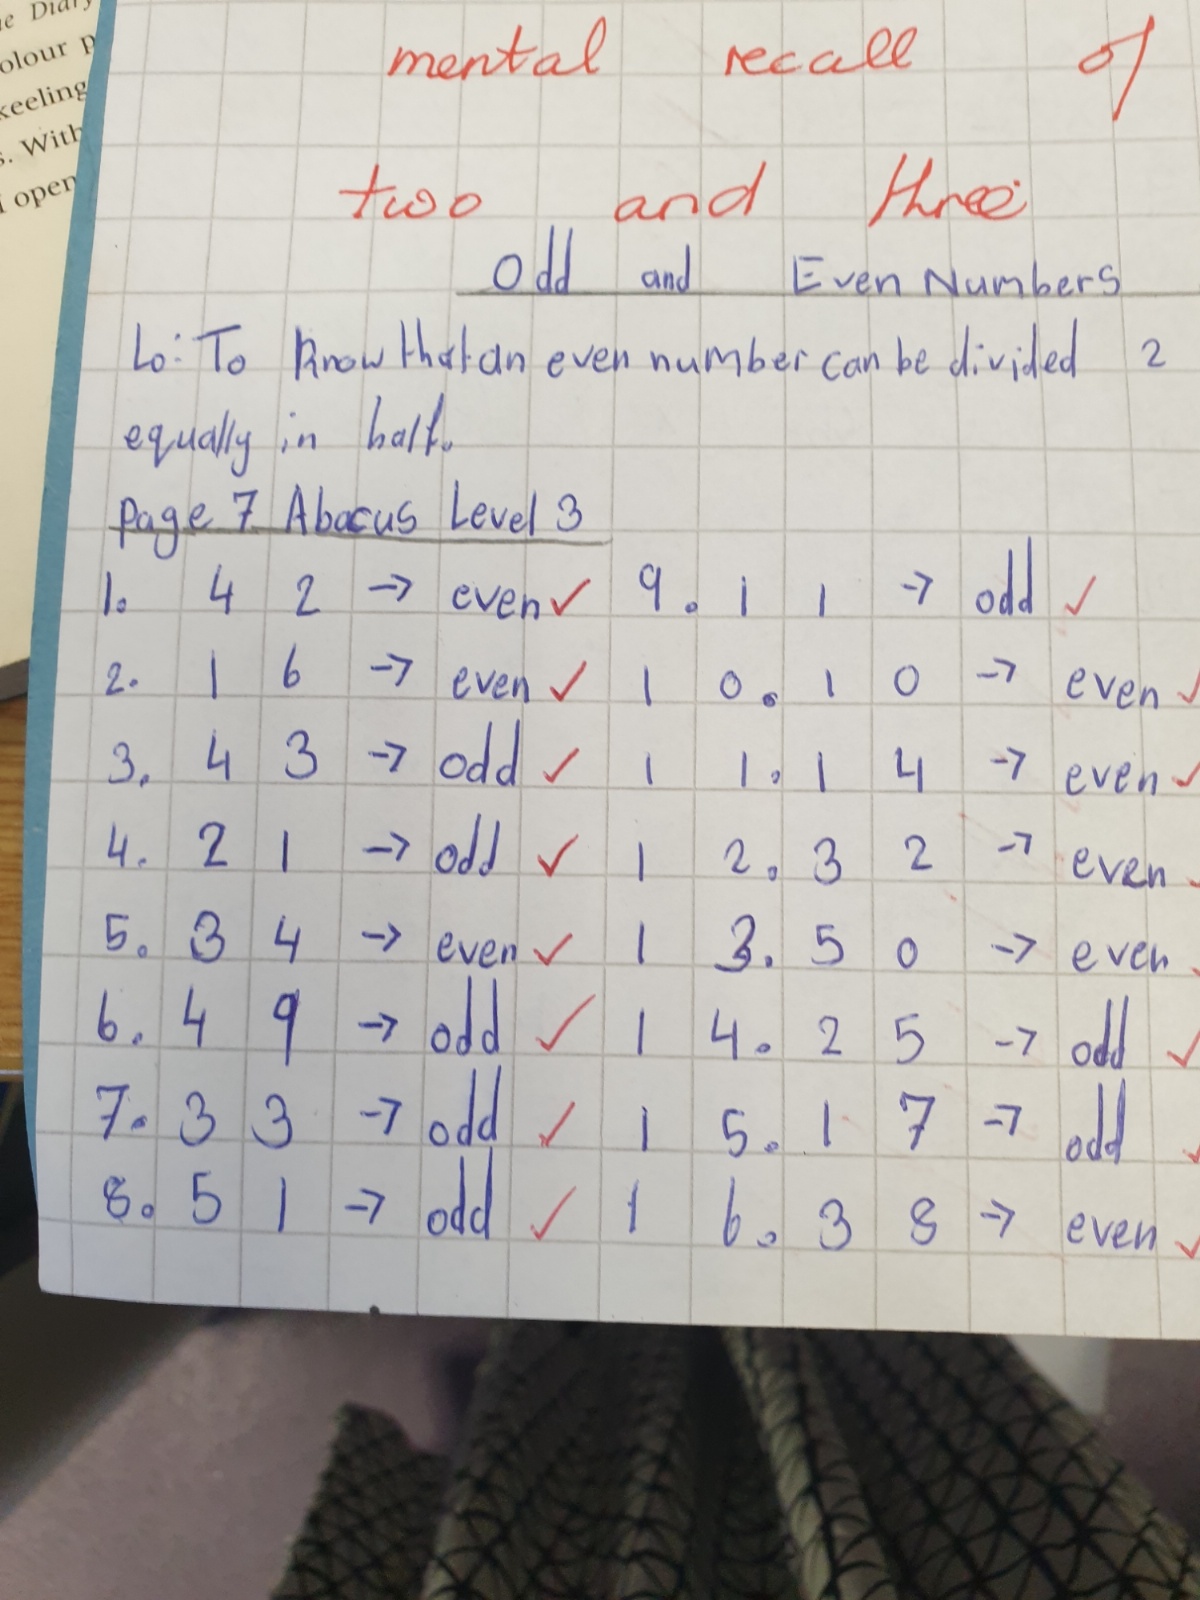 Diary
olour p
keeling
s. With
open
mental recall of
two and three
Odd and Even Numbers
Lo: To Know that an even number can be divided 2
equally in half.
Page 7 Abacus Level 3
1. 42 → even ✓ 9. 11 → odd ✓
2. 16 → even ✓ 10. 10 → even ✓
3. 43 → odd ✓ 11. 14 → even ✓
4. 21 → odd ✓ 12. 32 → even ✓
5. 34 → even ✓ 13. 50 → even ✓
6. 49 → odd ✓ 14. 25 → odd ✓
7. 33 → odd ✓ 15. 17 → odd ✓
8. 51 → odd ✓ 16. 38 → even ✓